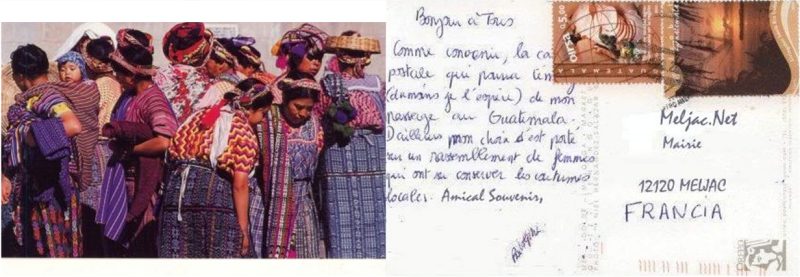 Bonjour à Tous
Comme convenu, la ca
postale qui
(du moins je l'espère) de mon
passage au Guatemala.
D'ailleurs mon choix s'est porté
sur un rassemblement de femmes
qui ont su conserver les costumes
locales. Amical Souvenir,
5.00
GUATEMALA
Meljac.Net
Mairie
12120 MELJAC
FRANCIA